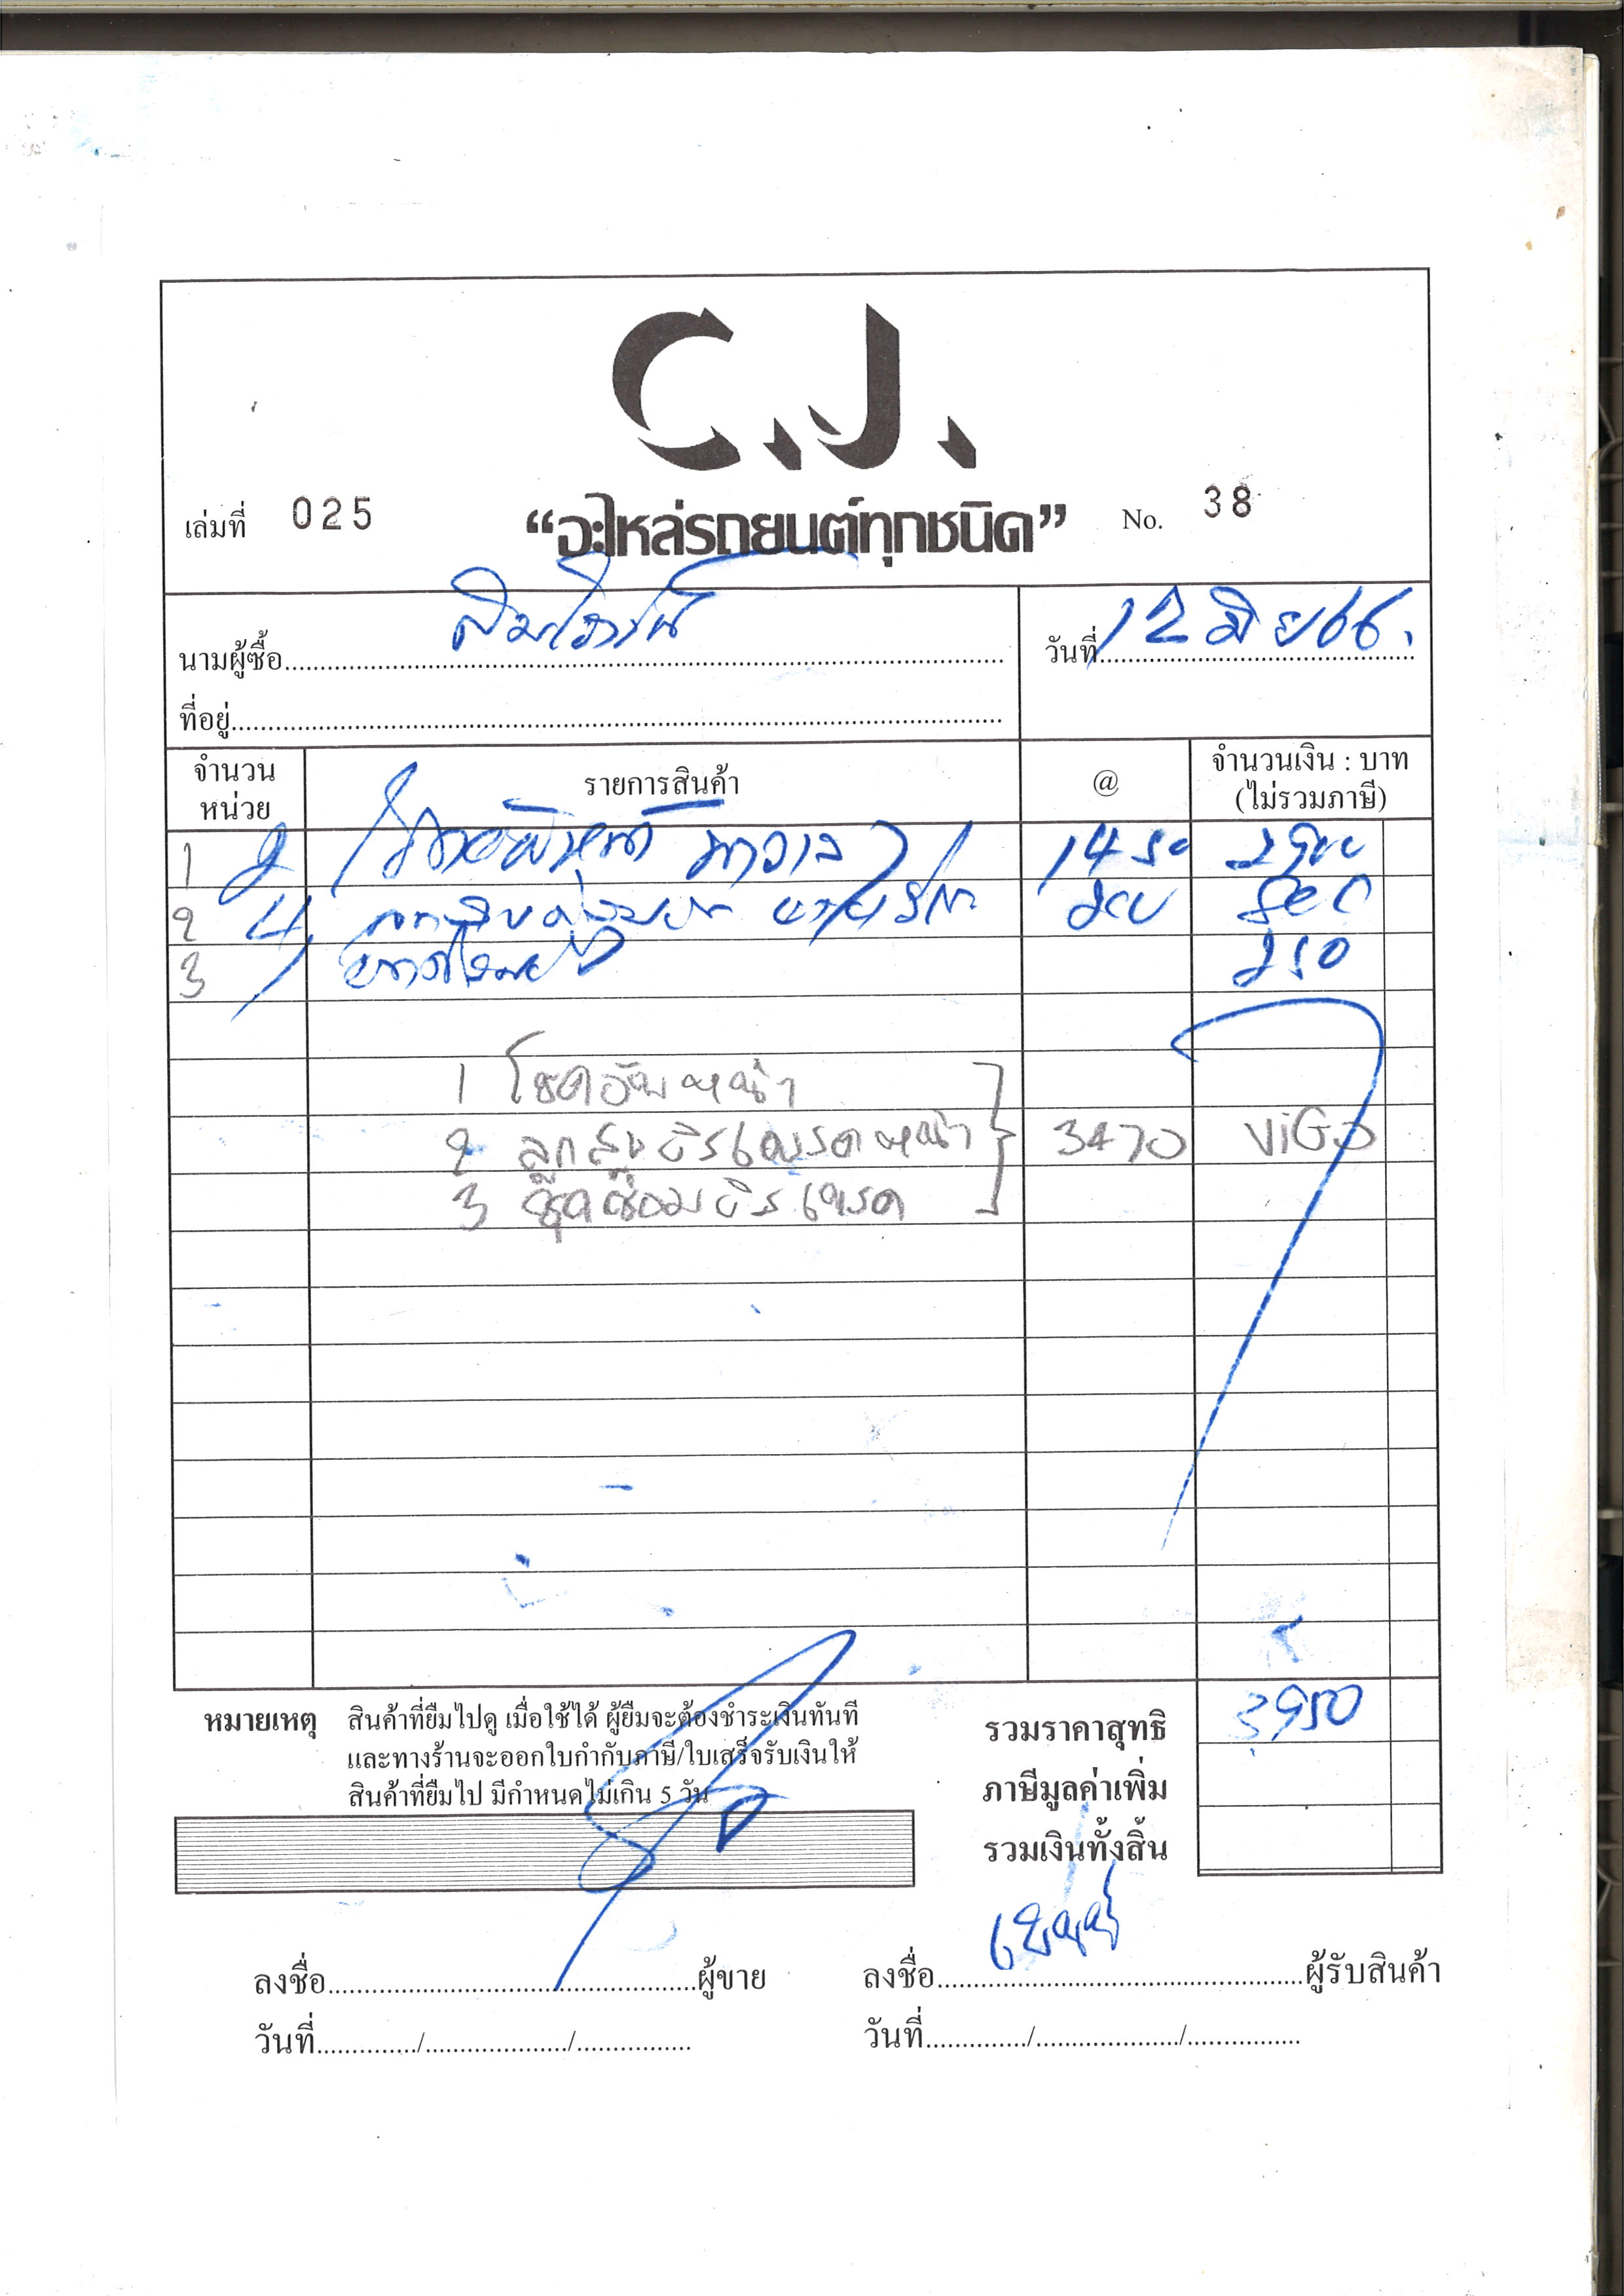 C.J.
เล่มที่ 025 “อะไหล่รถยนต์ทุกชนิด” No. 38
นามผู้ซื้อ วันที่ 12 มิย 66.
ที่อยู่
จำนวนหน่วย รายการสินค้า @ จำนวนเงิน : บาท (ไม่รวมภาษี)
1 2 1450 2900
2 4 200 800
3 250
1 โชคอัพหน้า
2 ลูกสูบดิสเบรคหน้า 3470 ViGo
3 ชุดซ่อมดิสเบรค
หมายเหตุ สินค้าที่ยืมไปดู เมื่อใช้ได้ ผู้ยืมจะต้องชำระเงินทันที
และทางร้านจะออกใบกำกับภาษี/ใบเสร็จรับเงินให้
สินค้าที่ยืมไป มีกำหนดไม่เกิน 5 วัน
รวมราคาสุทธิ 3950
ภาษีมูลค่าเพิ่ม
รวมเงินทั้งสิ้น
ลงชื่อ ผู้ขาย ลงชื่อ ผู้รับสินค้า
วันที่ / / วันที่ / /